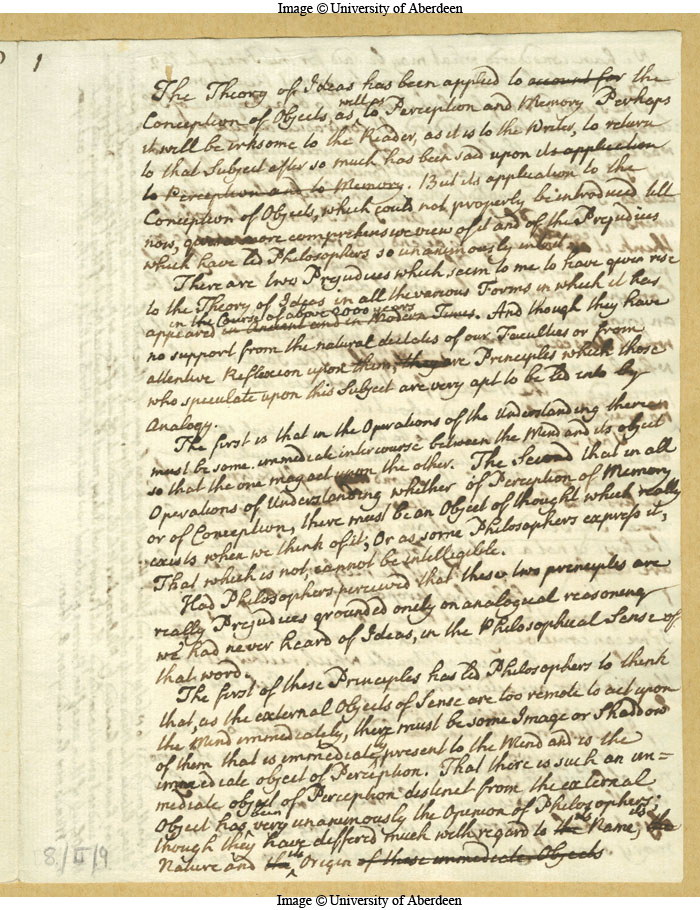 Image © University of Aberdeen
1
The Theory of Ideas has been applied to account for the
Conception of Objects, as well as to Perception and Memory Perhaps
it will be irksome to the Reader, as it is to the Writer, to return
to that Subject after so much has been said upon its application
to Perception and to Memory. But its application to the
Conception of Objects, which could not properly be introduced till
now, more comprehensive view of it and of the Prejudices
which have led Philosophers so unanimously into it
There are two Prejudices which seem to me to have given rise
to the Theory of Ideas in all the various Forms in which it has
in the Course of above 2000 years
appeared in Ancient and in Modern Times. And though they have
no support from the natural dictates of our Faculties or from
attentive Reflexion upon them, they are Principles which those
who speculate upon this Subject are very apt to be led into by
Analogy.
The first is that in the Operations of the Understanding there
must be some immediate intercourse between the Mind and its object
so that the one may act upon the other. The Second that in all
Operations of Understanding whether of Perception of Memory
or of Conception, there must be an Object of thought which really
exists when we think of it; Or as some Philosophers express it,
That which is not, cannot be intelligible.
Had Philosophers perceived that these two principles are
really Prejudices grounded onely on analogical reasoning
we had never heard of Ideas, in the Philosophical Sense of
that word.
The first of these Principles has led Philosophers to think
that, as the external Objects of Sense are too remote to act upon
the Mind immediately, there must be some Image or Shaddow
of them that is immediately present to the Mind and is the
immediate object of Perception. That there is such an im=
mediate object of Perception distinct from the external
Object has been very unanimously the Opinion of Philosophers;
though they have differed much with regard to the its Name, the its
Nature and the its Origin of these immediate Objects
8/II/9
Image © University of Aberdeen